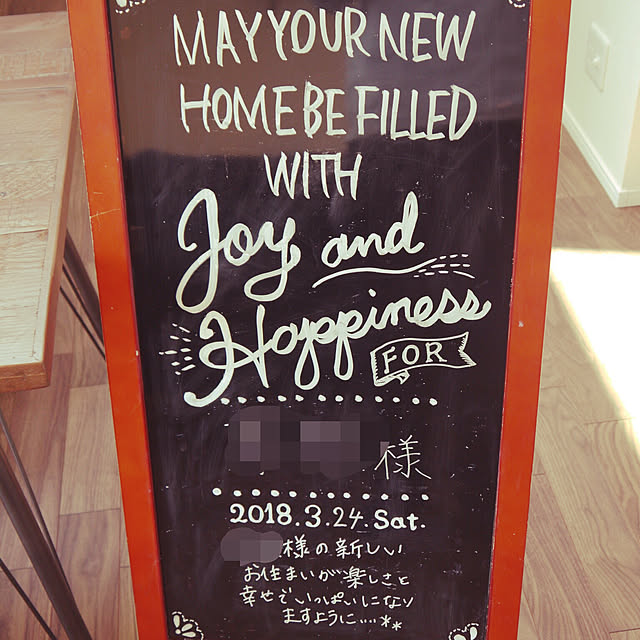 MAY YOUR NEW
HOME BE FILLED
WITH
Joy and
Happiness
FOR
様
2018.3.24.Sat.
様の新しい
お住まいが楽しさと
幸せでいっぱいになり
ますように....**